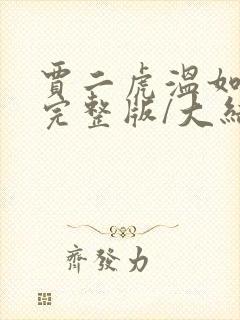 賈二虎溫如
完整版/大結
齊發力